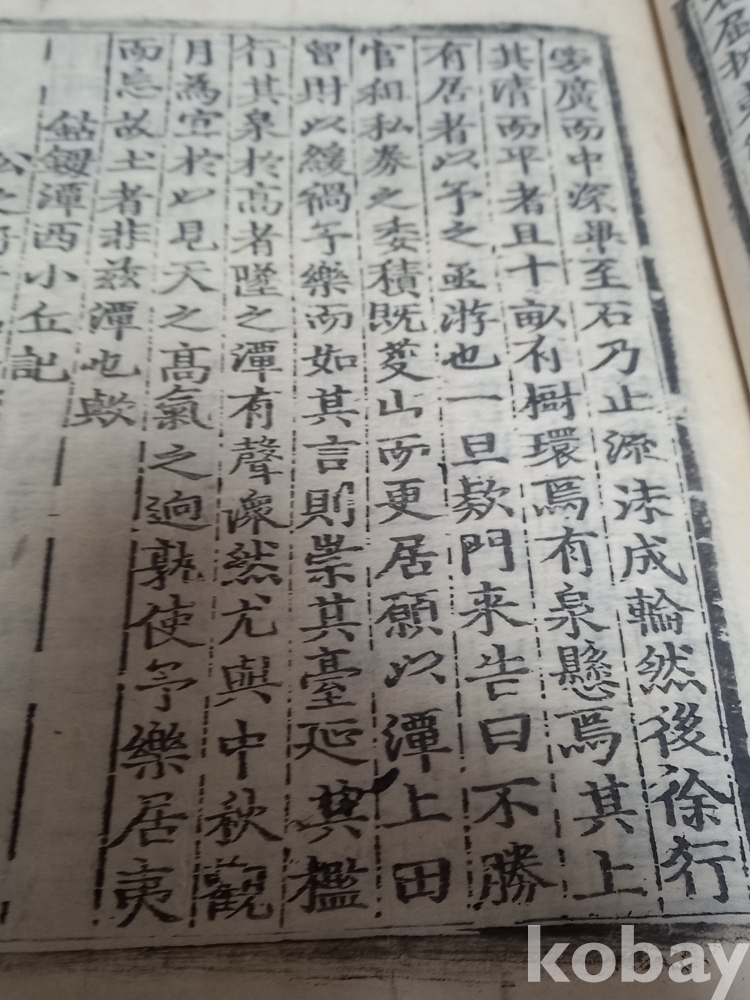 旁廣而中深畢至石乃止流沫成輪然後徐行
其清而平者且十畝有樹環焉有泉懸焉其上
有居者以予之亟游也一旦款門来告曰不勝
官租私券之委積既芟山而更居願以潭上田
曾財以緩禍予樂而如其言則崇其臺延其檻
行其泉於高者墜之潭有聲潀然尤與中秋觀
月為宜於以見天之高氣之逈孰使予樂居夷
而忘故土者非茲潭也歟
鈷鉧潭西小丘記
kobay